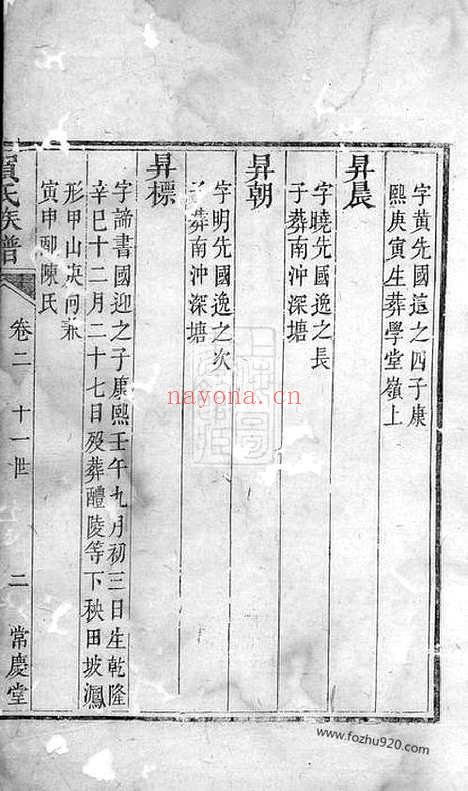 字黄先國遠之四子康
熙庚寅生葬學堂嶺上
昇晨
字曉先國逸之長
子葬南沖深塘
昇朝
字明先國逸之次
子葬南沖深塘
昇標
字諦書國迎之子康熙壬午九月初三日生乾隆
辛巳十二月二十七日殁葬醴陵等下秧田坡鳯
形甲山庚向兼
寅申配陳氏
氏族譜
卷二
十一世
二
常慶堂
nayona.cn
www.fozhu920.com